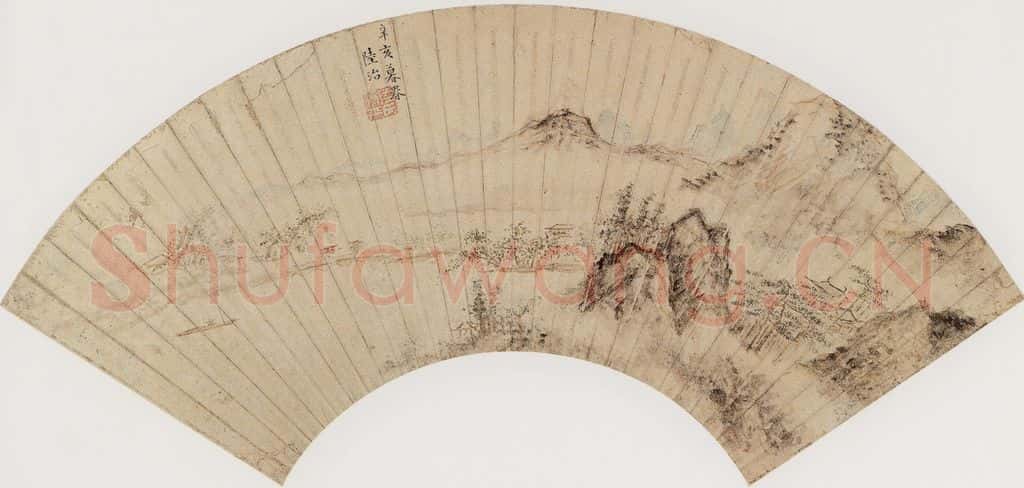 辛亥暮春
陸治
Shufawang.CN